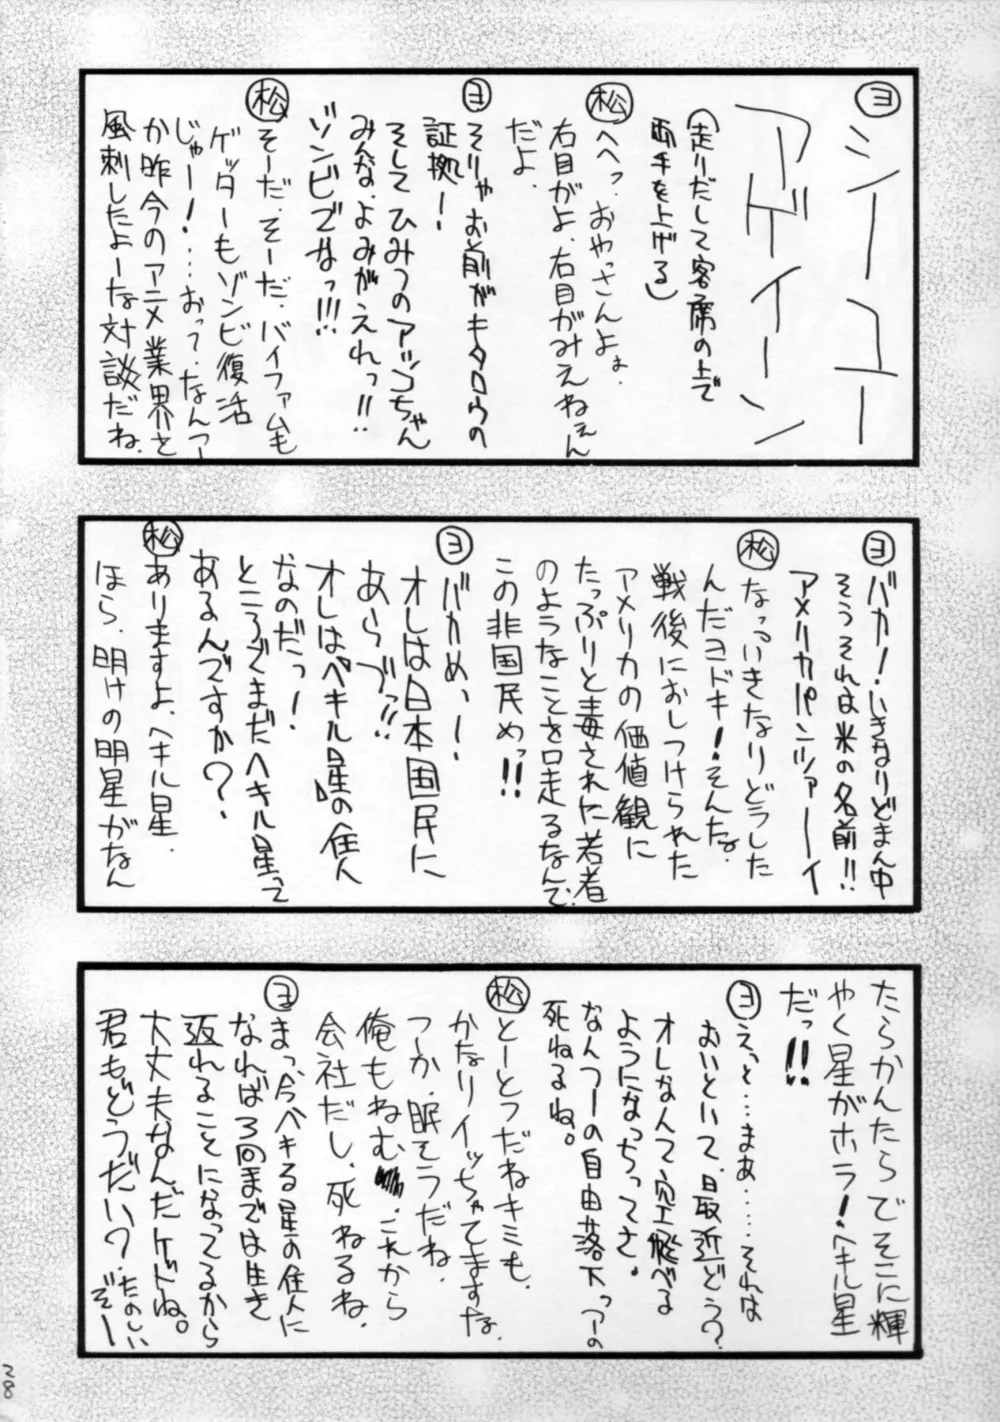 ヨ
シーユー
アゲイーン
(走りだして客席の上で
両手を上げる)
松
へへっ、おやっさんよぉ、
右目がよ、右目がみえねぇん
だよ、
ヨ
そりゃお前がキタロウの
証拠ー!
そしてひみつのアッコちゃん
みんな、よみがえれっ!!
ゾンビでなっ!!!
松
そーだ、そーだ、バイファムも
ゲッターもゾンビ復活
じゃー!…おって、なんつー
か昨今のアニメ業界を
風刺したよーな対談だね、
ヨ
バカ!いきなりどまん中
そうそれは米の名前!!
アメリカパンツァーーイ
松
なっいきなりどうした
んだヨドキ!そんな、
戦後におしつけられた
アメリカの価値観に
たっぷりと毒された若者
のようなことを口走るなんて、
この非国民めっ!!
ヨ
バカめ、ー、
オレは日本国民に
あらずっ!!
オレは「ベキル星」の住人
なのだっー!
ところでまだヘキル星って
あるんですか?
松
ありますよ、ヘキル星、
ほら、明けの明星がなん
たらかんたらでそこに輝
やく星がホラ!ヘキル星
だっ!!
ヨ
えっと…まぁ……それは
おいといて、最近どう?
オレなんて、空飛べる
ようになっちってさ。
なんつーの自由落下っつーの
死ねるね。
松
とーとつだねキミも、
かなりイッちゃてますな、
つーか、眠そうだね、
俺もねむ、これから
会社だし、死ねるね、
ヨ
まっ、今ベキる星の住人に
なれば3回までは生き
返れることになってるから
大丈夫なんだケドね。
君もどうだい?たのしい
ぞー
28